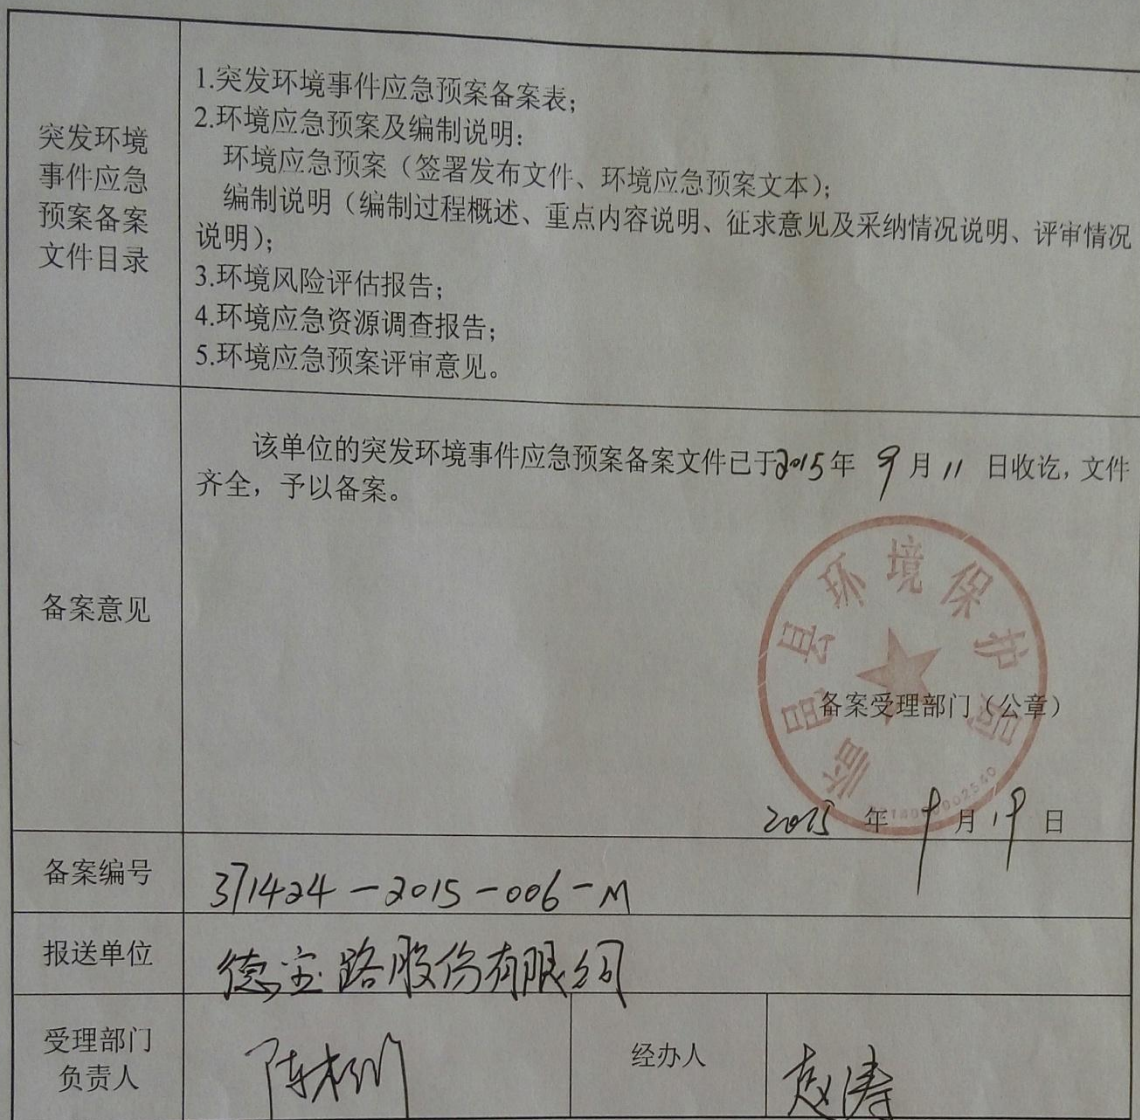 突发环境
事件应急
预案备案
文件目录
1.突发环境事件应急预案备案表;
2.环境应急预案及编制说明:
环境应急预案（签署发布文件、环境应急预案文本）;
编制说明（编制过程概述、重点内容说明、征求意见及采纳情况说明、评审情况
说明）;
3.环境风险评估报告;
4.环境应急资源调查报告;
5.环境应急预案评审意见。
备案意见
该单位的突发环境事件应急预案备案文件已于2015年 9月 11 日收讫，文件
齐全，予以备案。
临邑县环境保护局
备案受理部门（公章）
2015 年 9 月 19 日
备案编号
371424-2015-006-M
报送单位
德宝路股份有限公司
受理部门
负责人
陈
经办人
赵涛